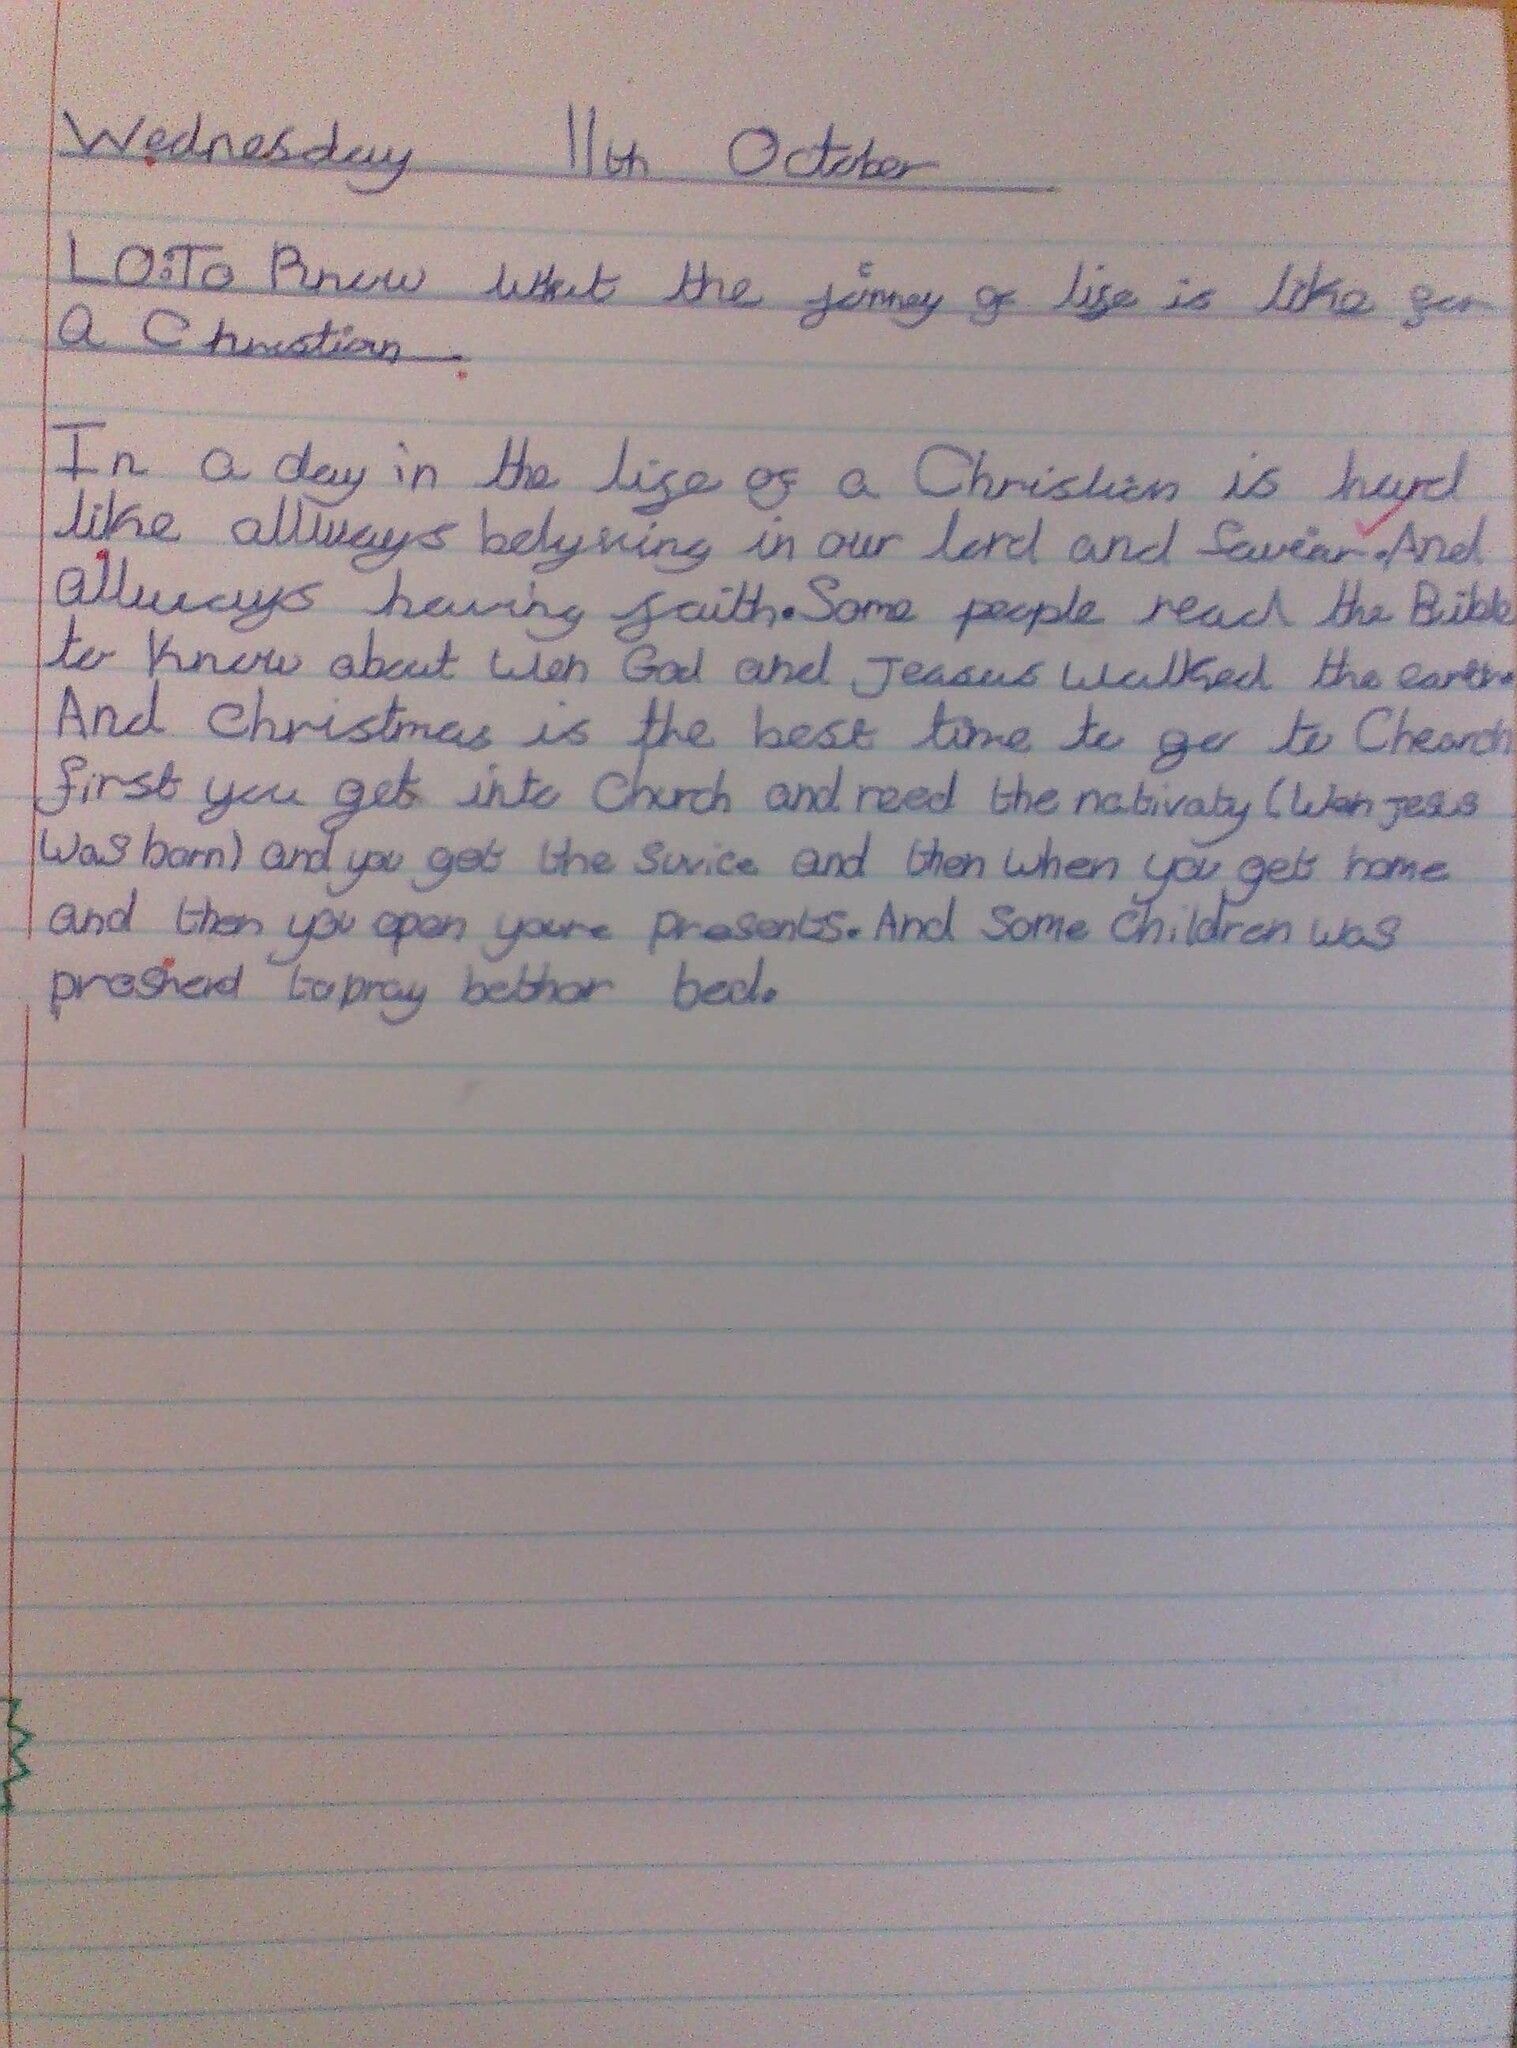 Wednesday 11th October
LO:To Know what the jorney of life is like for
a Christian.
In a day in the life of a Christian is hard
like allways belyving in our lord and Saviar. And
allways having faith. Some people read the Bible
to know about wen God and Jeasus walked the earth.
And christmas is the best time to go to Chearch
first you get into Church and reed the nativaty (Wen jesis
was born) and you get the survice and then when you get home
and then you open youre presents. And Some children was
to pray bethor bed.